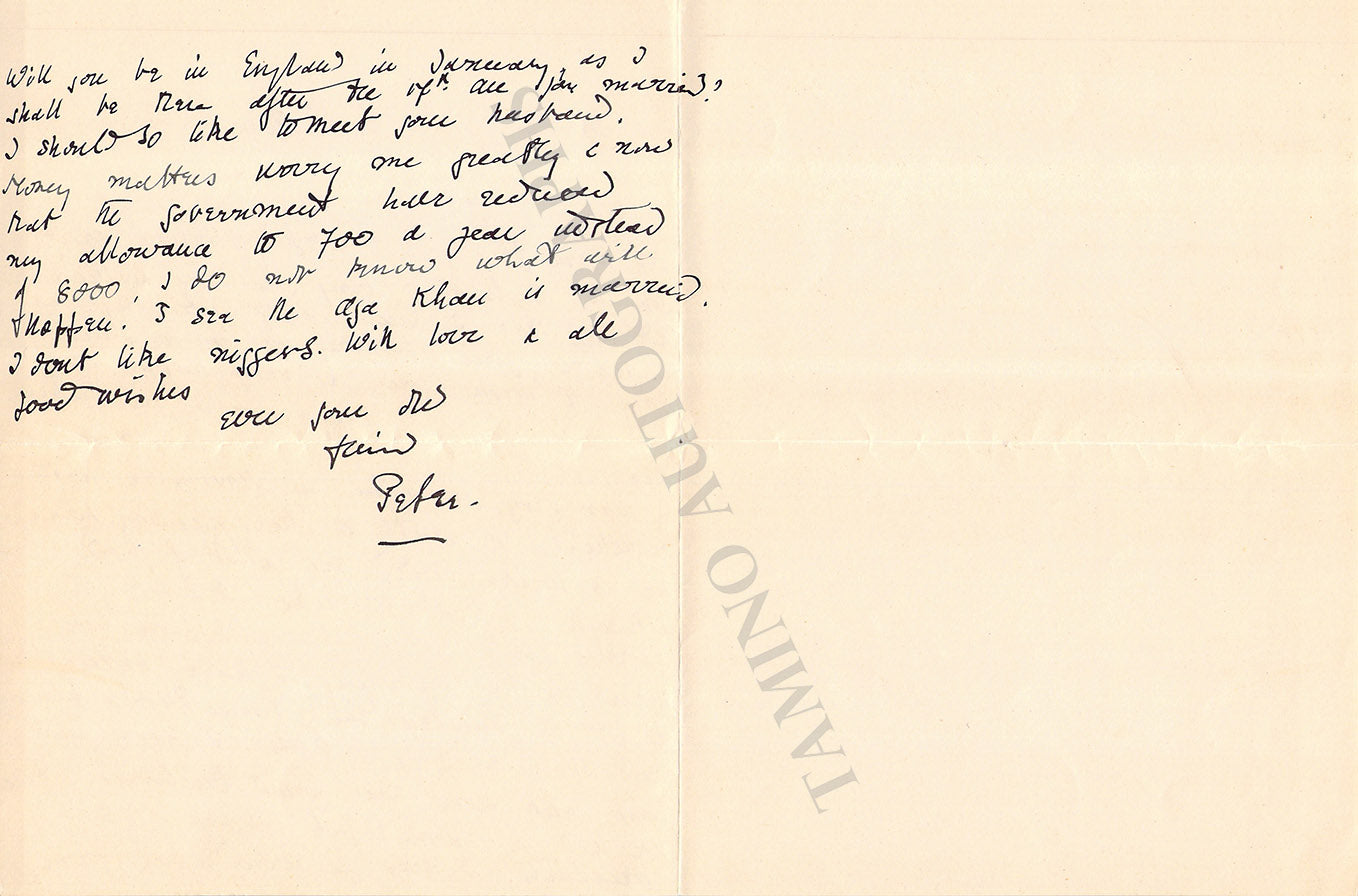 Will you be in England in January, as I
shall be there after the 17th. Are you married?
I should so like to meet your husband.
Money matters worry me greatly & now
that the government have reduced
my allowance to 700 a year instead
of 8000, I do not know what will
happen. I see the Aga Khan is married.
I dont like niggers. With love & all
good wishes
ever your old
friend
Peter.
TAMINO AUTOGRAPHS